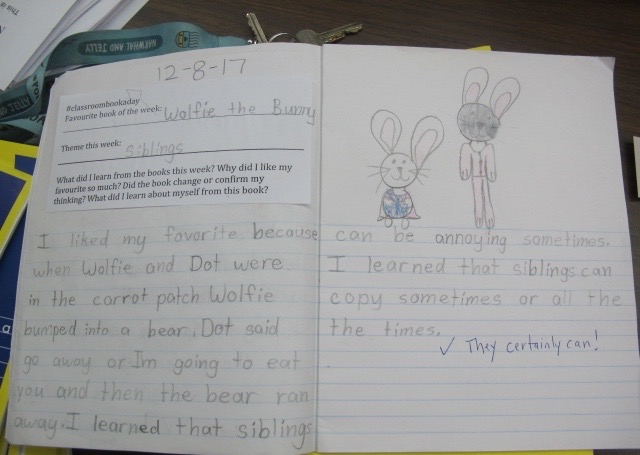 NARWHAL AND JELLY
12-8-17
#classroombookaday
Favourite book of the week: Wolfie the Bunny
Theme this week: siblings
What did I learn from the books this week? Why did I like my
favourite so much? Did the book change or confirm my
thinking? What did I learn about myself from this book?
I liked my favorite because
when Wolfie and Dot were
in the carrot patch Wolfie
bumped into a bear. Dot said
go away or Im going to eat
you and then the bear ran
away. I learned that siblings
can be annoying sometimes.
I learned that siblings can
copy sometimes or all the
the times.
✓ They certainly can!